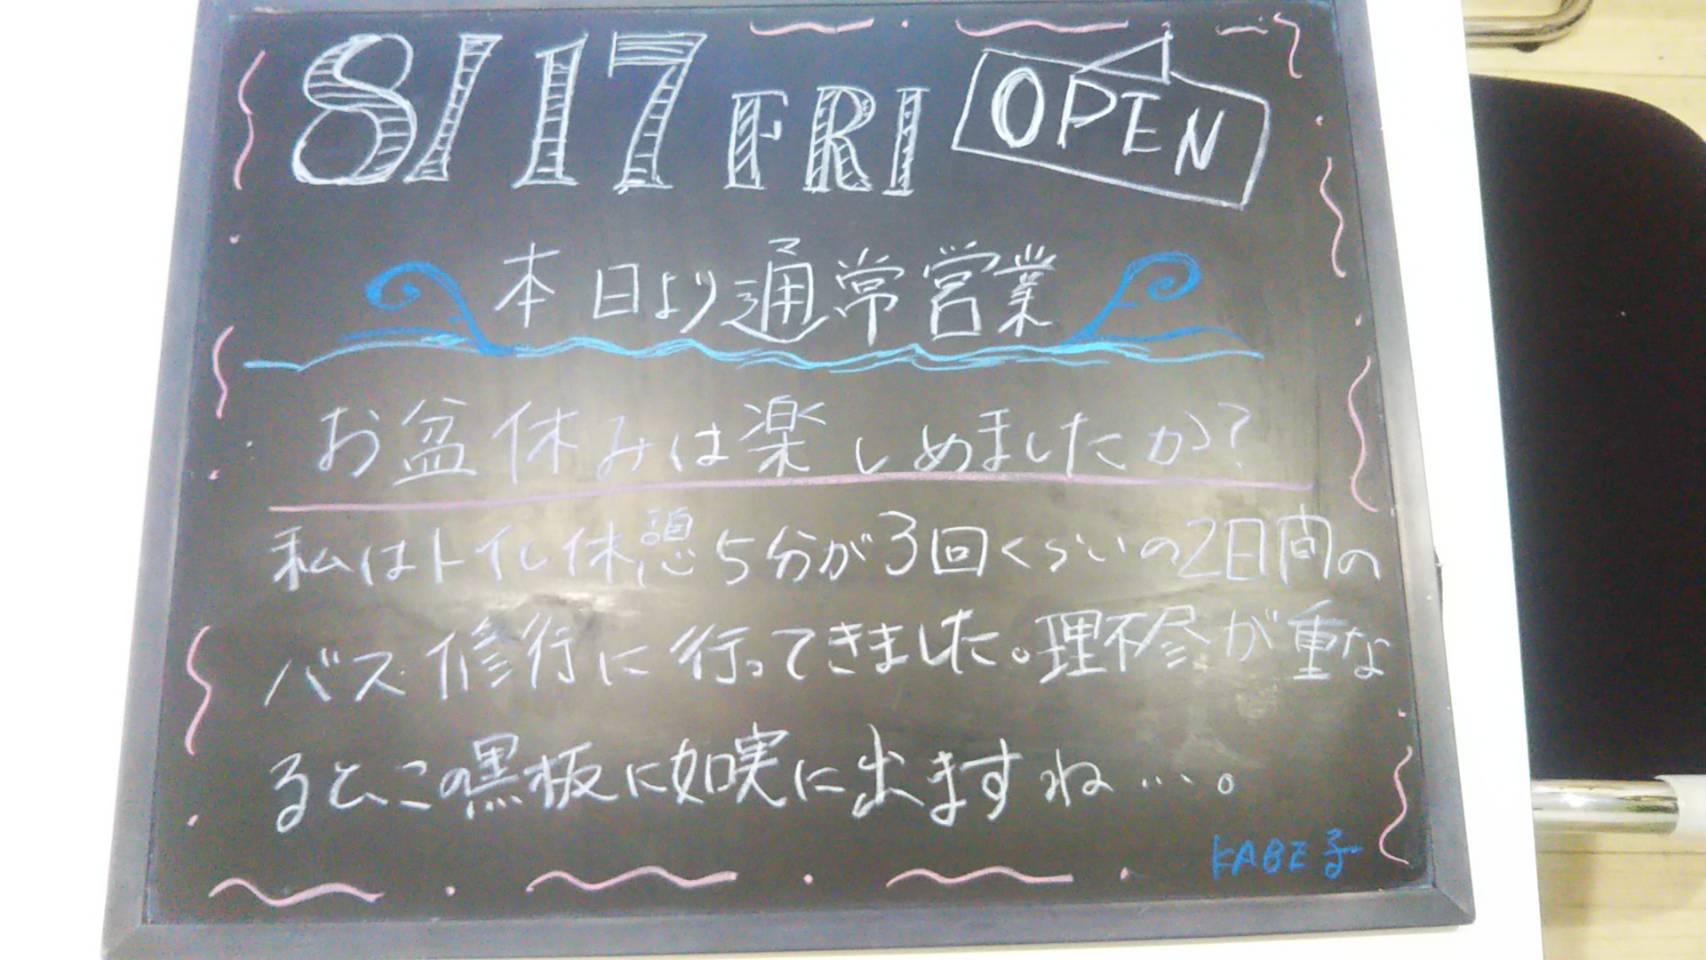 8/17 FRI OPEN
本日より通常営業
お盆休みは楽しめましたか?
私はトイレ休憩5分が3回くらいの2日間の
バス修行に行ってきました。理不尽が重な
ると、この黒板に如実に出ますね…。
KABE子